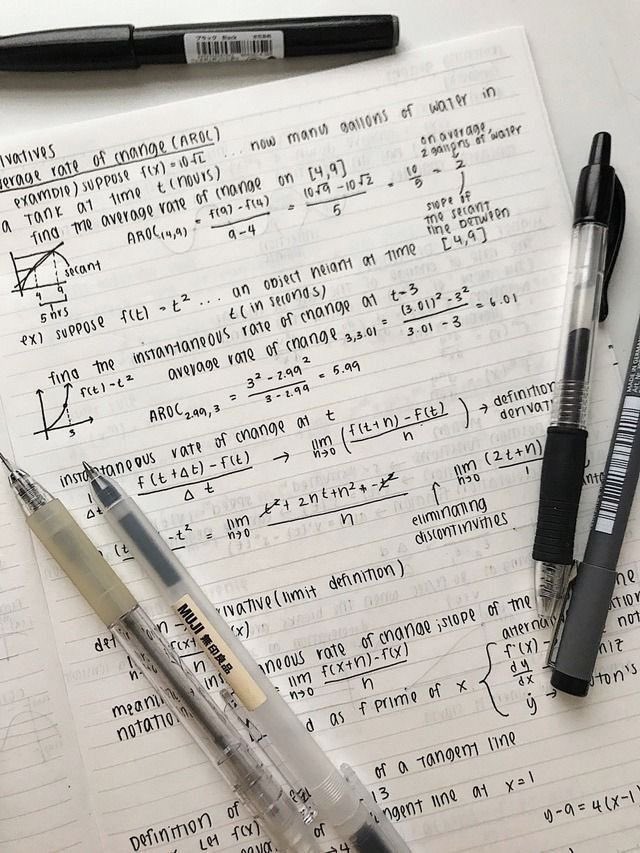 ブラック Black
derivatives
average rate of change (AROC)
example) suppose f(x) = 10√t ... now many gallons of water in
a tank at time t (hours)
find the average rate of change on [4,9]
AROC(4,9) = f(9) - f(4) / 9-4 = 10√9 - 10√2 / 5 = 10/5 = 2
on average,
2 gallons of water
slope of
the secant
line between
[4,9]
secant
4 9
5 hrs
ex) suppose f(t) = t² ... an object heignt at time
t (in seconds)
find the instantaneous rate of change at t=3
f(t) - t²
3
average rate of change 3,3.01 = (3.01)² - 3² / 3.01 - 3 = 6.01
AROC 2.99,3 = 3² - 2.99² / 3 - 2.99 = 5.99
instantaneous rate of change at t
f(t + Δt) - f(t) / Δt → lim n→0 ( f(t+n) - f(t) / n ) → definition
derivati
- t² = lim n→0 t² + 2nt + n² + - t² / n
lim n→0 (2t+n) / 1
eliminating
discontinuities
into
rivative (limit definition)
neous rate of change; slope of the
lim n→0 f(x+n) - f(x) / n
meani
notatio
d as f prime of x
f'(x)
dy/dx
ẏ → ton's
niz
not
MUJI 無印良品
Definition of
of a tangent line
Let f(x)
13
ngent line at x=1
y-9 = 4(x-1